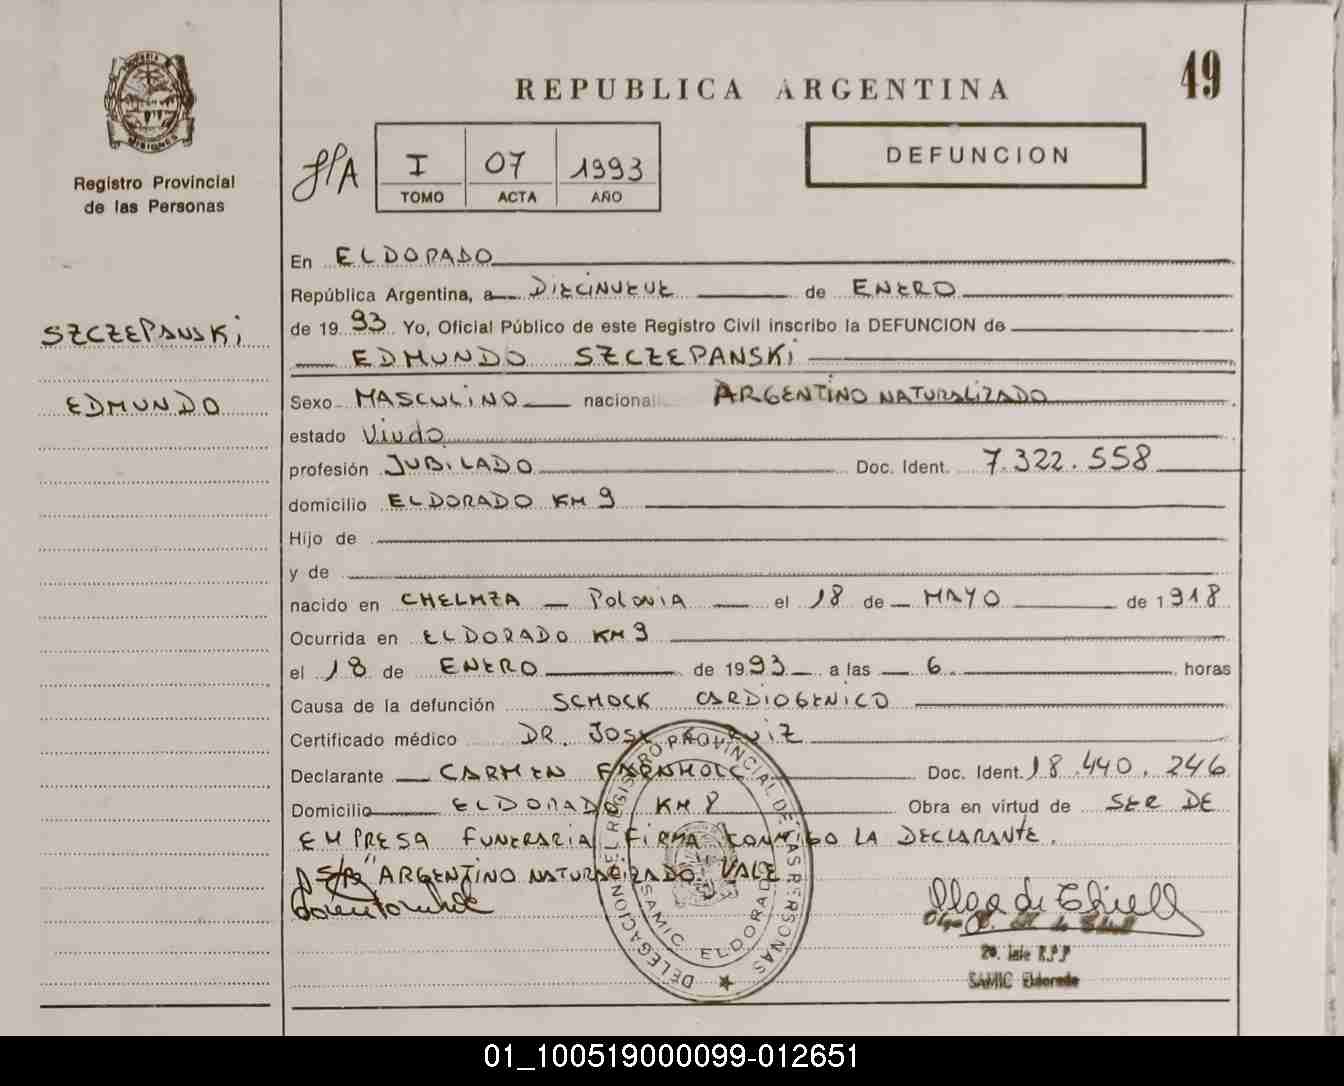 49
REPUBLICA ARGENTINA
MISIONES
Registro Provincial
de las Personas
I 07 1993
TOMO ACTA AÑO
DEFUNCION
SZCZEPANSKI
EDMUNDO
En ELDORADO
República Argentina, a DIECINUEVE de ENERO
de 1993 Yo, Oficial Público de este Registro Civil inscribo la DEFUNCION de
EDMUNDO SZCZEPANSKI
Sexo MASCULINO nacional ARGENTINO NATURALIZADO
estado Viudo
profesión JUBILADO Doc. Ident. 7.322.558
domicilio ELDORADO KM 9
Hijo de
y de
nacido en CHELMZA - POLONIA el 18 de MAYO de 1918
Ocurrida en ELDORADO KM 9
el 18 de ENERO de 1993 a las 6 horas
Causa de la defunción SCHOCK CARDIOGENICO
Certificado médico DR. JOSE RUIZ
Declarante CARMEN Doc. Ident. 18.440.246
Domicilio ELDORADO KM 8 Obra en virtud de SER DE
EMPRESA FUNERARIA FIRMA CONMIGO LA DECLARANTE.
S/R "ARGENTINO NATURALIZADO VALE
DELEGACION EL REGISTRO PROVINCIAL DE LAS PERSONAS
SAMIC ELDORADO
Olga de Chiell
Olga de
SAMIC Eldorado
01_100519000099-012651